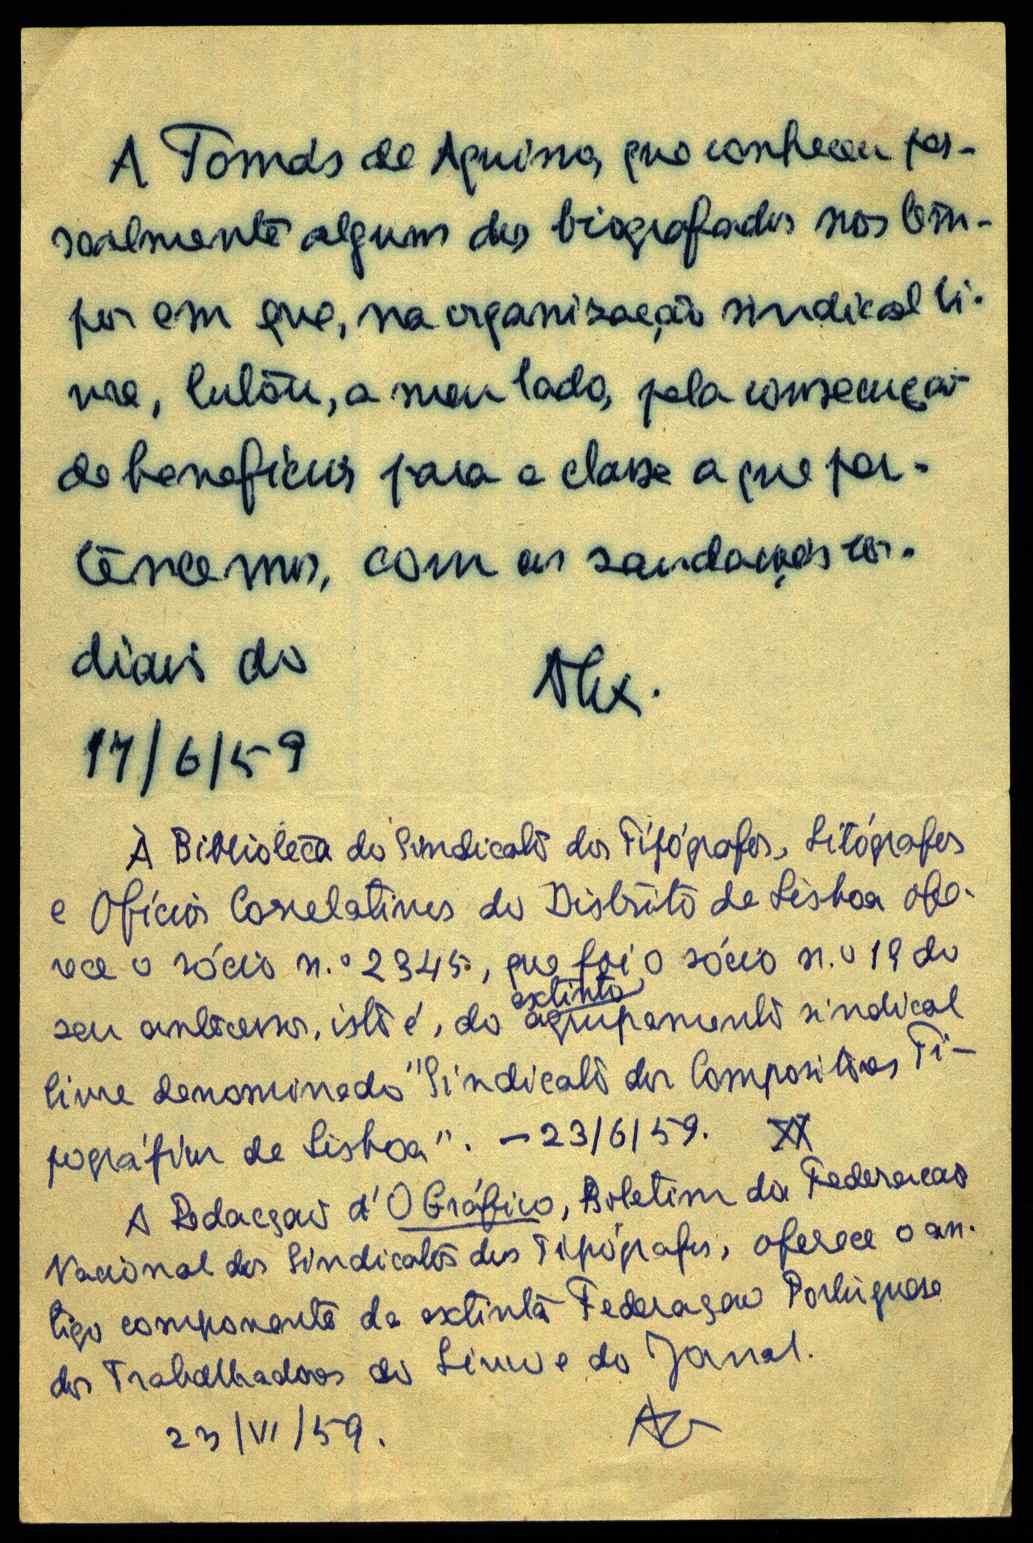 A Tomás de Aquino, que conheceu pes-
soalmente alguns dos biografados nos tem-
pos em que, na organização sindical li-
vre, lutou, a meu lado, pela consecução
de benefícios para a classe a que per-
tencemos, com as saudações cor-
diais do
Alex.
17/6/59
À Biblioteca do Sindicato dos Tipógrafos, Litógrafos
e Ofícios Correlativos do Distrito de Lisboa ofe-
rece o sócio n.º 2345, que foi o sócio n.º 19 do
seu antecessor, isto é, do extinto agrupamento sindical
livre denominado "Sindicato dos Compositores Ti-
pográficos de Lisboa". — 23/6/59.
A Redacção d'O Gráfico, Boletim da Federação
Nacional dos Sindicatos dos Tipógrafos, oferece o an-
tigo componente da extinta Federação Portuguesa
dos Trabalhadores do Livro e do Jornal.
23/VI/59.